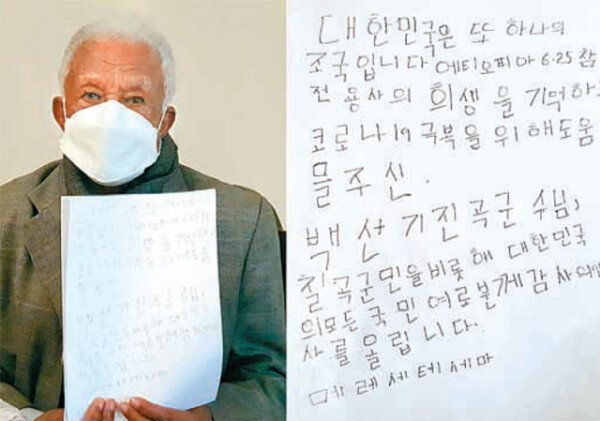 대한민국은 또 하나의
조국입니다 에티오피아 6·25 참
전 용사의 희생을 기억하
코로나19 극복을 위해도움
믈주신.
백선기진곡군수님,
칠곡군민을비롯해 대한민국
의모든 국민 여로분께감사의
사를 올립니다.
메레세테세마